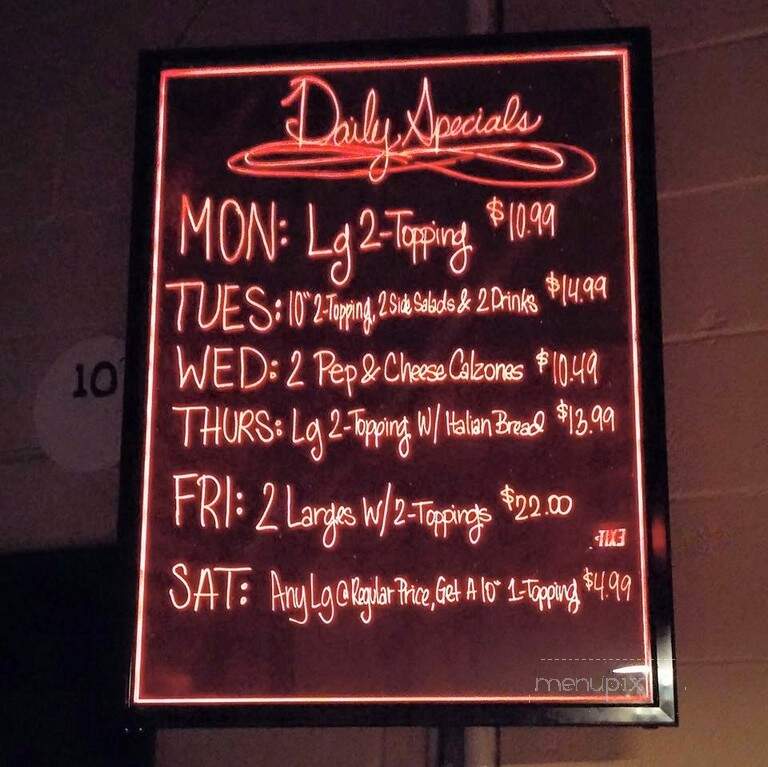 Daily Specials
MON: Lg 2-Topping $10.99
TUES: 10" 2-Topping, 2 Side Salads & 2 Drinks $14.99
WED: 2 Pep & Cheese Calzones $10.49
THURS: Lg 2-Topping W/ Italian Bread $13.99
FRI: 2 Larges W/ 2-Toppings $22.00
EXIT
SAT: Any Lg @ Regular Price, Get A 10" 1-Topping $4.99
10
menupix